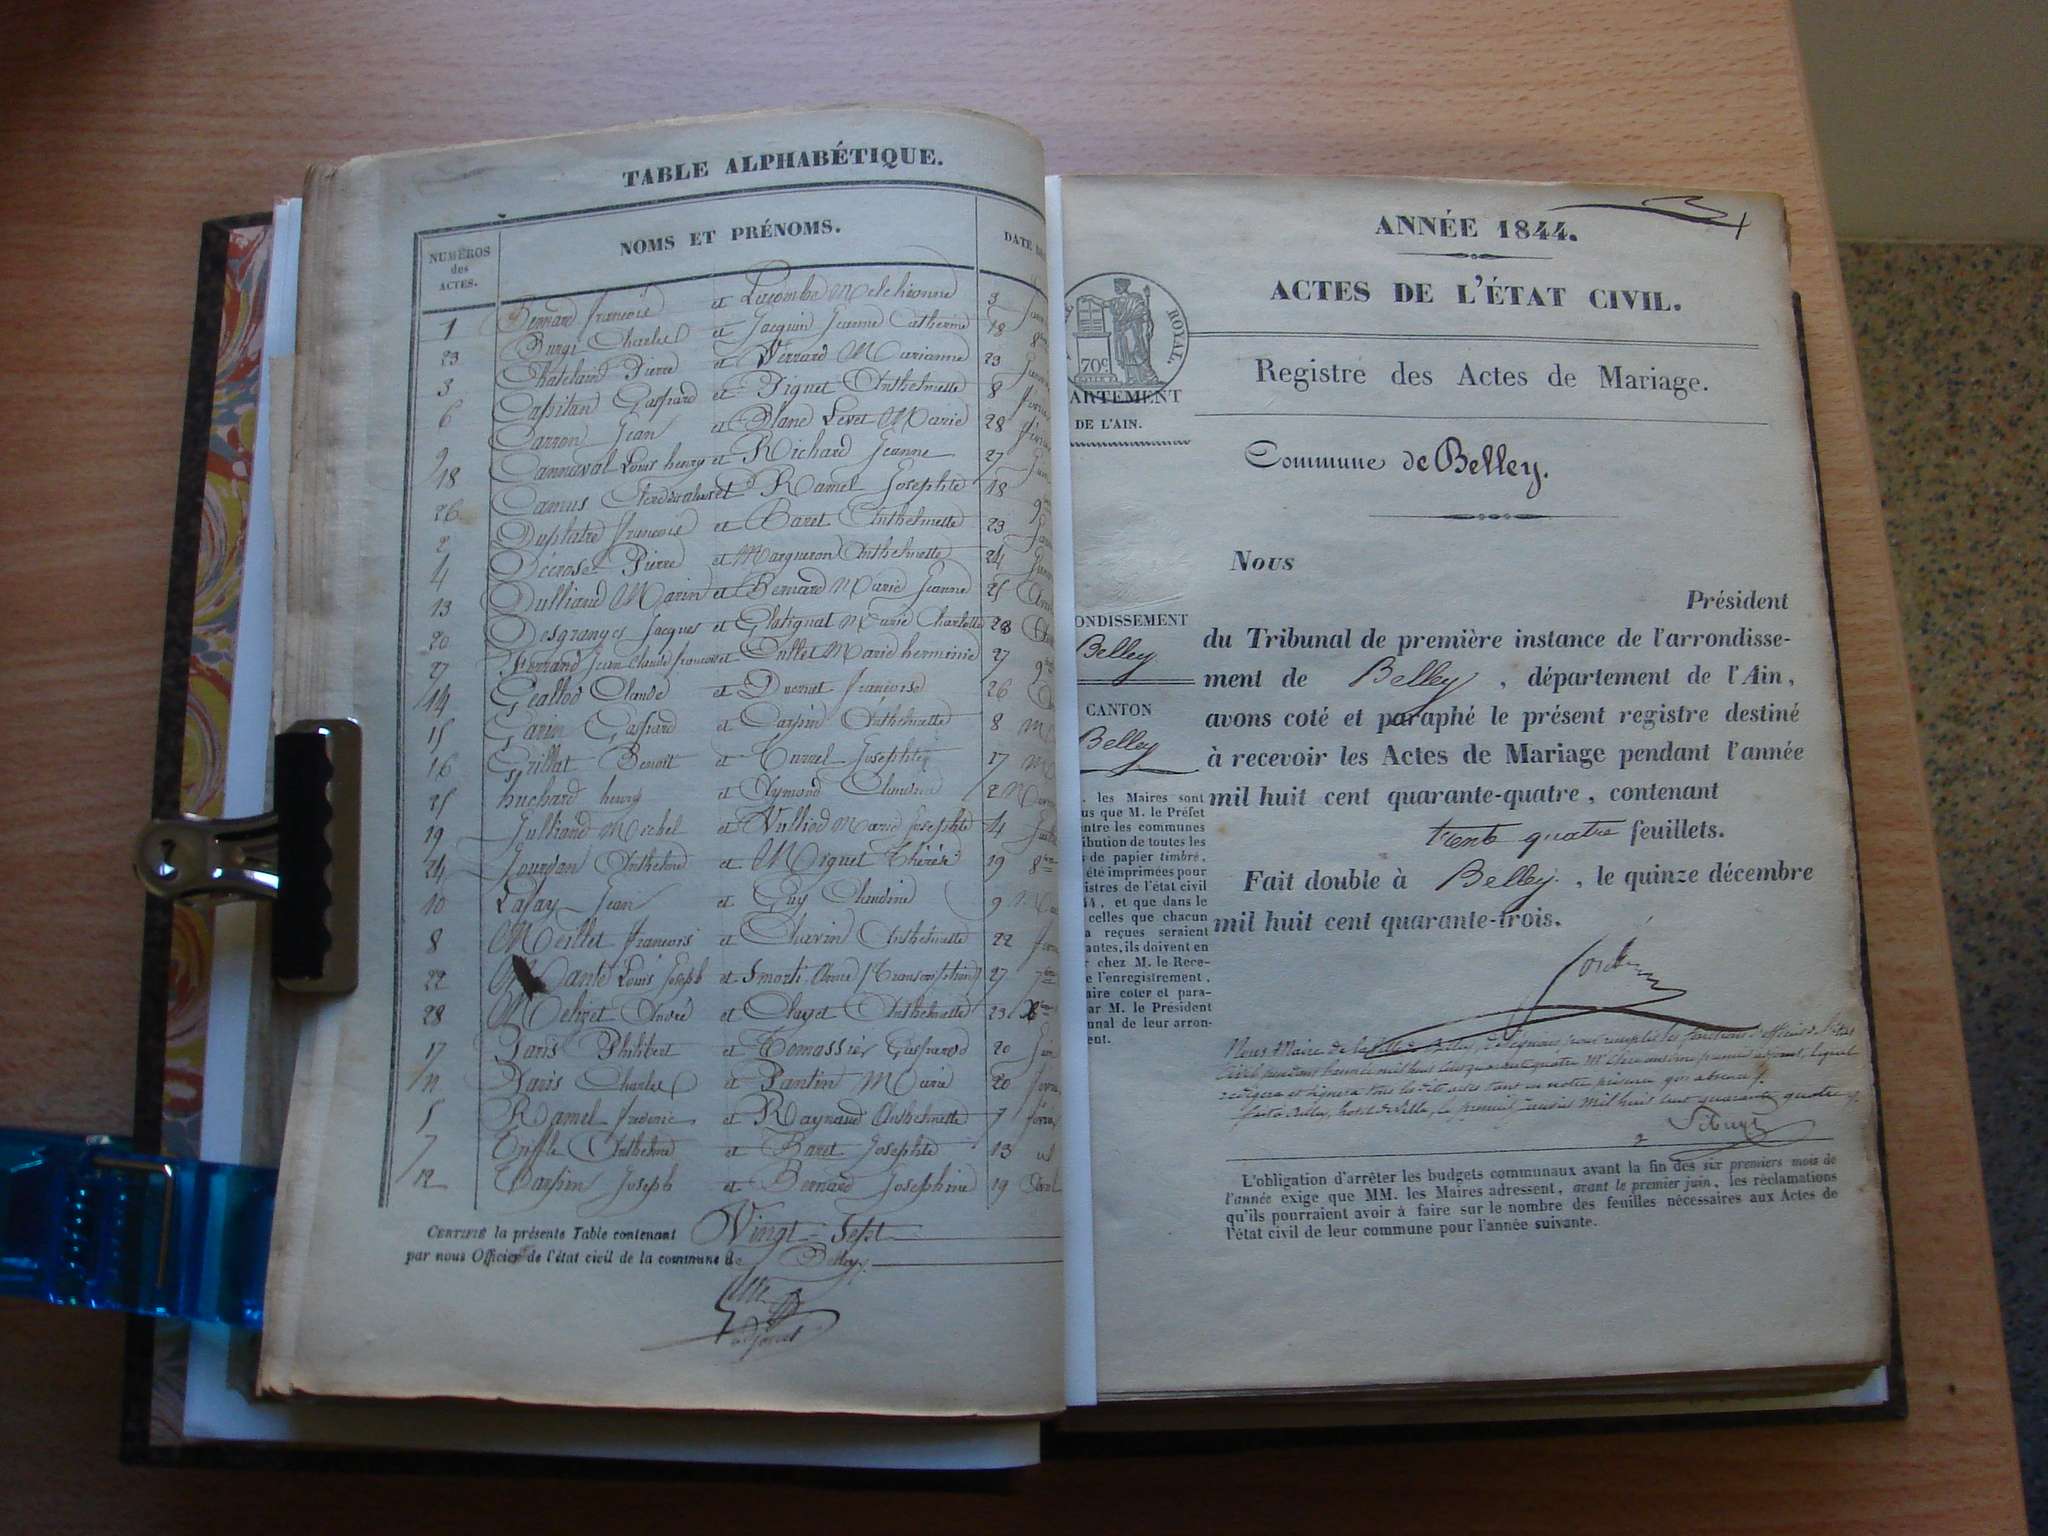 TABLE ALPHABÉTIQUE.
NUMÉROS
des
ACTES.
NOMS ET PRÉNOMS.
DATE
1 Bernard françois et Lacombe Melchionne 3
23 Burgi Charles et Jacquin Jeanne Catherine 18
3 Chatelain Pierre et Verrard Marianne 23
6 Capitan Gaspard et Piguet Anthelmette 8
9 Carron Jean et Blanc Levet Marie 28
18 Cannaval Louis henry et Richard Jeanne 27
26 Camus et Ramel Josephte 18
2 Duplatre françois et Baret Anthelmette 23
4 Décroset Pierre et Marqueron Anthelmette 24
13 Dulliand Marin et Bernard Marie Jeanne 25
20 Desgranges Jacques et Glatignat Marie Charlotte 28
27 Ferrand Jean Claude françois et Marie herminie 27
14 Claude et françoise 26
15 Garin Gaspard et Carpin Anthelmette 8
16 Grillat Benoit et Curtel Josephte 17
25 huchard henry et Aymond Claudine 2
19 Julliand Michel et Vulliod Marie Josephte 4
24 Jourdan Anthelme et Miguet Thérèse 19 8bre
10 Lafay Jean et Guy Claudine 9
8 Meillet françois et Charvin Anthelmette 22
22 Mante Louis Joseph et Smorti Anne (Transcription) 27 7bre
28 Melizet André et Clayet Anthelmette 23
17 Paris Philibert et Tomassier 20
11 Paris Charles et Pantin Marie 20
5 Ramel frédéric et Raynaud Anthelmette 7
7 Triffle Anthelme et Baret Josephte 13 id
12 Varpin Joseph et Bernard Josephine 19 Avril
CERTIFIÉ la présente Table contenant Vingt-Sept
par nous Officier de l'état civil de la commune de Belley.
adjoint
ANNÉE 1844.
ACTES DE L'ÉTAT CIVIL.
ROYAL.
70c
ARTEMENT
DE L'AIN.
Registre des Actes de Mariage.
Commune de Belley.
Nous
Président
du Tribunal de première instance de l'arrondisse-
ment de Belley, département de l'Ain,
avons coté et paraphé le présent registre destiné
à recevoir les Actes de Mariage pendant l'année
mil huit cent quarante-quatre, contenant
trente quatre feuillets.
Fait double à Belley, le quinze décembre
mil huit cent quarante-trois.
ONDISSEMENT
Belley
CANTON
Belley
. les Maires sont
us que M. le Préfet
entre les communes
ribution de toutes les
s de papier timbré,
été imprimées pour
istres de l'état civil
44, et que dans le
celles que chacun
a reçues seraient
antes, ils doivent en
r chez M. le Rece-
e l'enregistrement,
aire coter et para-
par M. le Président
unal de leur arron-
ent.
Nous Maire de la Ville de Belley, pour remplir les fonctions d'officier de l'état
Civil pendant l'année mil huit cent quarante quatre Mr premier adjoint, lequel
rédigera et signera tous les dits actes tant en notre présence qu'en absence.
fait à Belley, hotel de Ville, le premier janvier mil huit cent quarante quatre.
L'obligation d'arrêter les budgets communaux avant la fin des six premiers mois de
l'année exige que MM. les Maires adressent, avant le premier juin, les réclamations
qu'ils pourraient avoir à faire sur le nombre des feuilles nécessaires aux Actes de
l'état civil de leur commune pour l'année suivante.